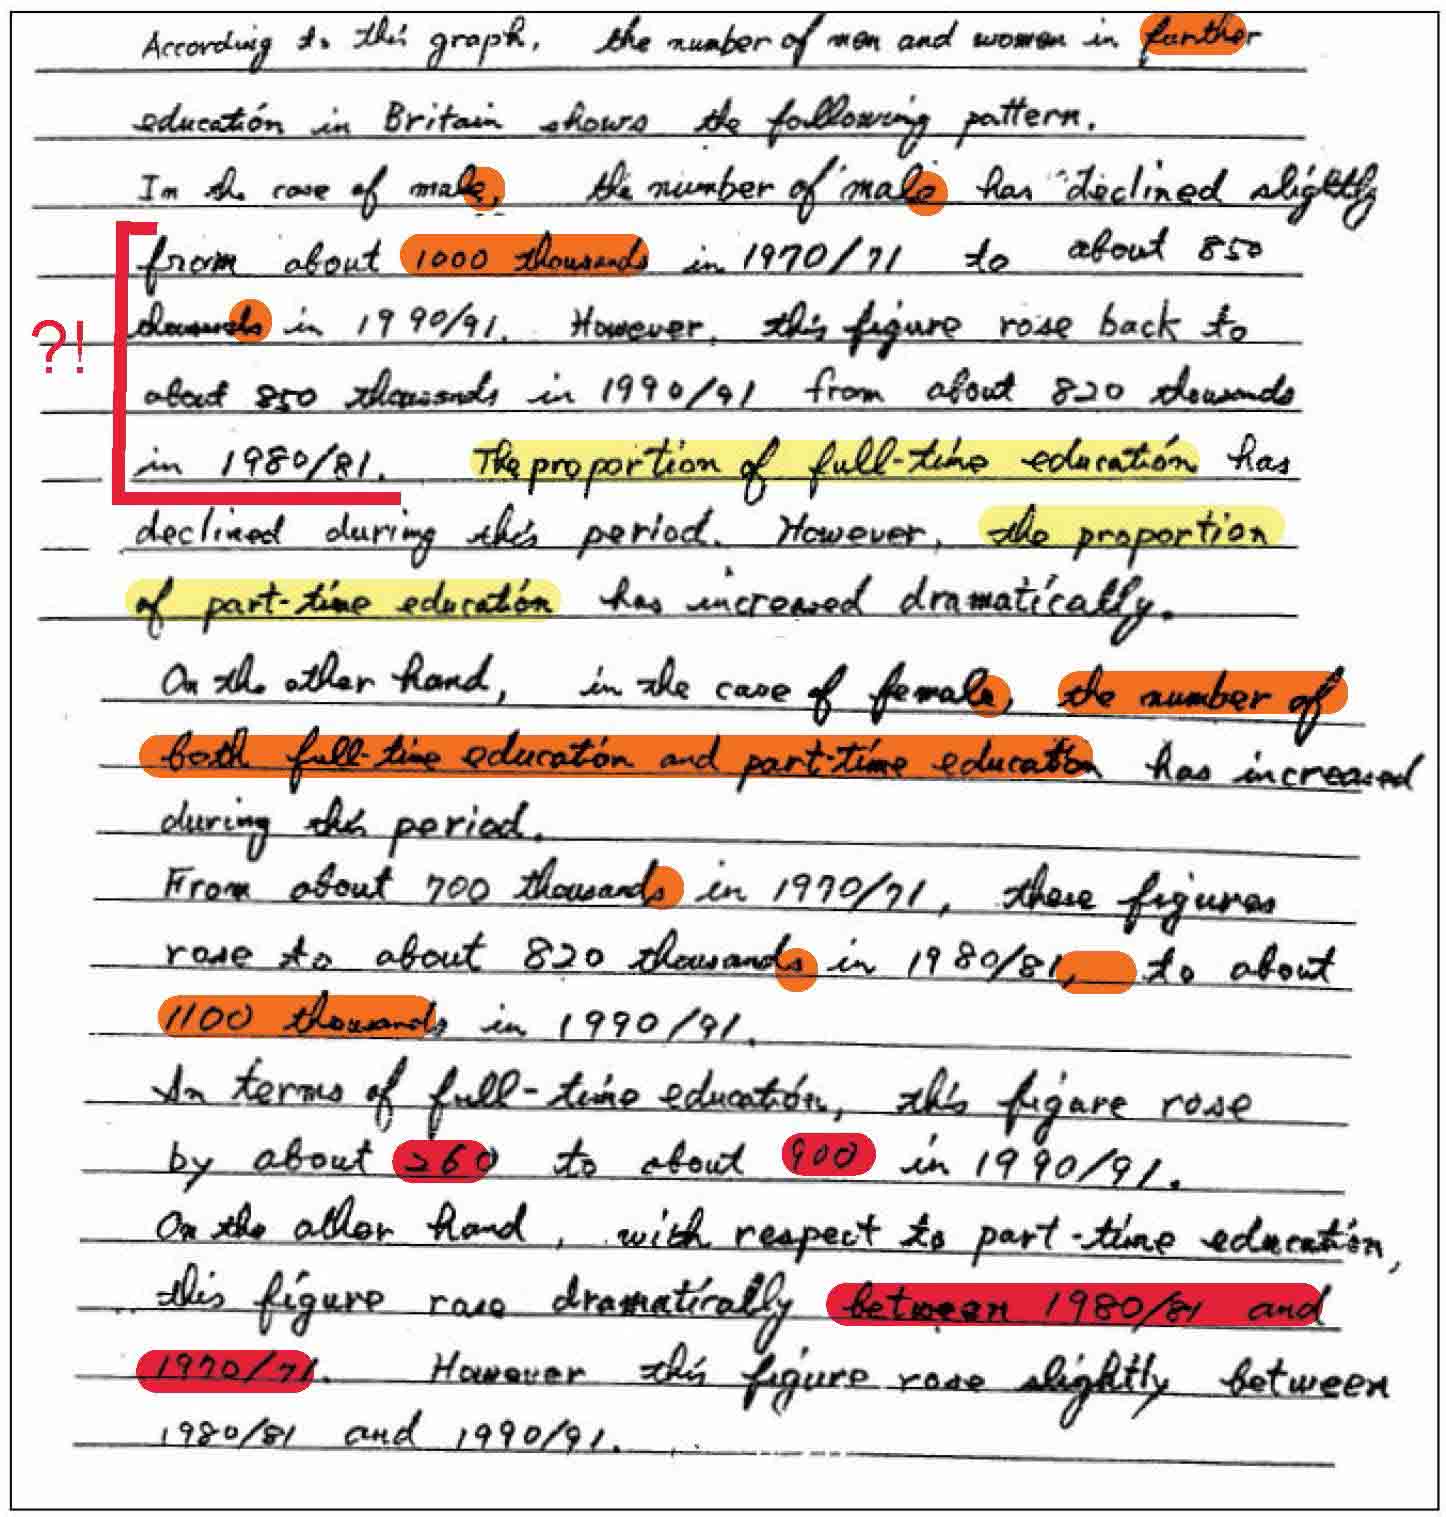 According to this graph, the number of men and women in further
education in Britain shows the following pattern.
In the case of male, the number of male has declined slightly
from about 1000 thousands in 1970/71 to about 850
thousands in 1990/91. However, this figure rose back to
?!
about 850 thousands in 1990/91 from about 820 thousands
in 1980/81. The proportion of full-time education has
declined during this period. However, the proportion
of part-time education has increased dramatically.
On the other hand, in the case of female, the number of
both full-time education and part-time education has increased
during this period.
From about 700 thousands in 1970/71, these figures
rose to about 820 thousands in 1980/81, to about
1100 thousands in 1990/91.
In terms of full-time education, this figure rose
by about 260 to about 900 in 1990/91.
On the other hand, with respect to part-time education,
this figure rose dramatically between 1980/81 and
1970/71. However this figure rose slightly between
1980/81 and 1990/91.